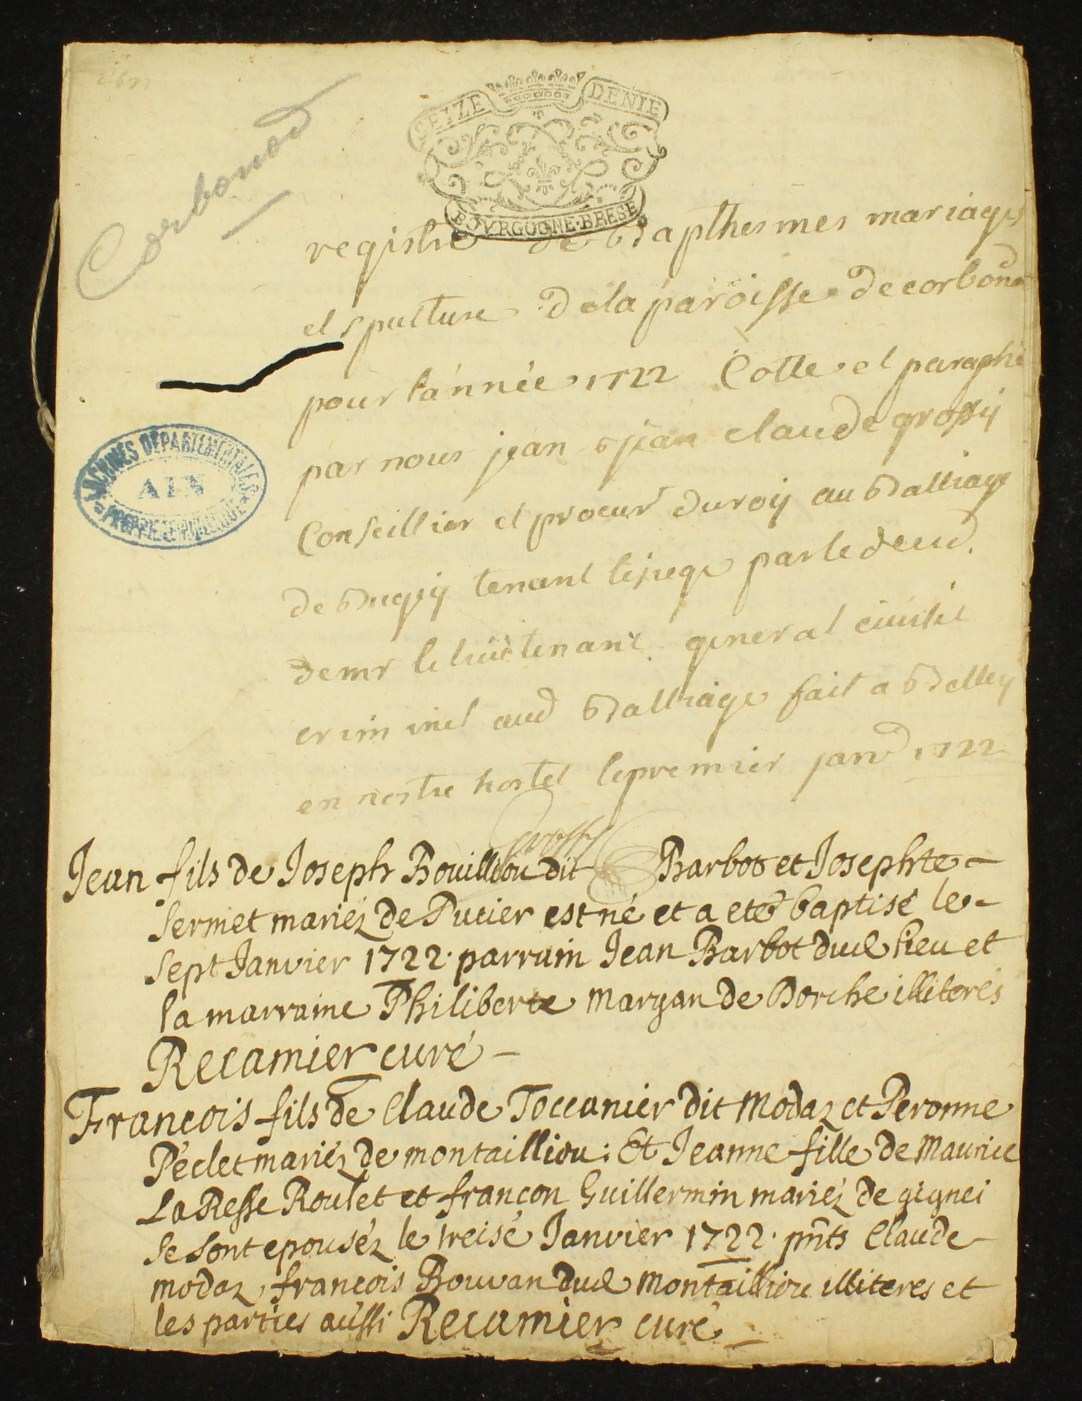 Corbonod
SEIZE DENIE
BOVRGOGNE·BRESE
registre de Bapthesmes mariages
et spulture de la paroisse de corbonod
pour lánnée 1722 Cotté et paraphé
par nous jean claude grossÿ
Conseillier et procur du roÿ au Balliage
de Bugeÿ tenant lesiege par le deced
de mr le lieütenant general civil et
criminel aud Balliage fait a Belley
en nostre hostel le premier janv 1722
Jean fils de Joseph Bouilliou dit Barbot et Josephte
Sermet mariéz de Pucier est né et a eté baptisé le
sept Janvier 1722. parrain Jean Barbot dud lieu et
la marraine Philiberte Margan de Dorche illiterés
Recamier curé
Francois fils de Claude Toccanier dit Modaz et Peronne
Péclet mariéz de montailliou : Et Jeanne fille de Maurice
La Resse Roulet et françon Guillermin mariéz de gignei
se sont epouséz le treisé Janvier 1722. pnts Claude
modaz, francois Bouvan dud montailliou illiteres et
les parties aussi Recamier curé
ARCHIVES DÉPARTEMENTALES
AIN
PROPRIÉTÉ PUBLIQUE